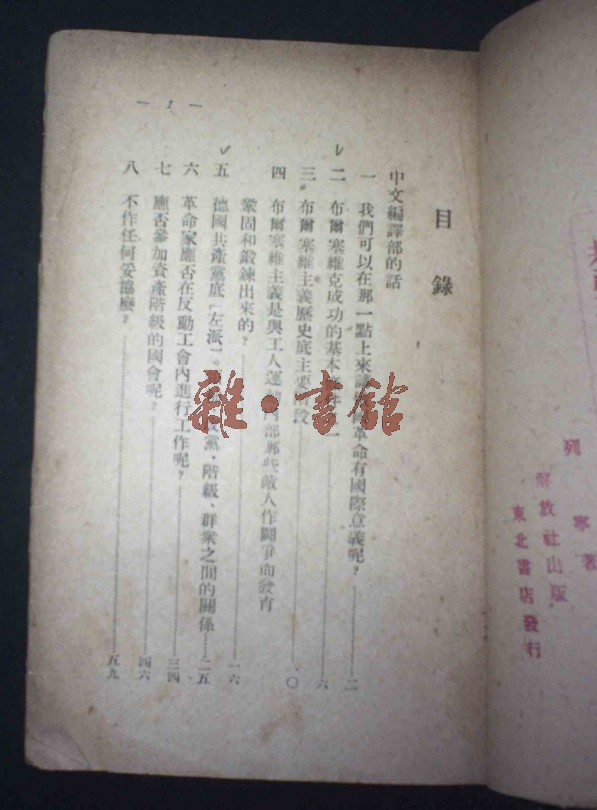 目錄
中文編譯部的話
一 我們可以在那一點上來 革命有國際意義呢?……二
二 布爾塞維克成功的基本 一……六
三 布爾塞維主義歷史底主要 段……一〇
四 布爾塞維主義是與工人運 內部那些敵人作鬬爭而發育
鞏固和鍛鍊出來的?……一六
五 德國共產黨底「左派」。 黨·階級、群眾之間的關係……二五
六 革命家應否在反動工會內進行工作呢?……三四
七 應否參加資產階級的國會呢?……四六
八 不作任何妥協麼?……五九
— 1 —
列寧著
解放社出版
東北書店發行
雜·書館